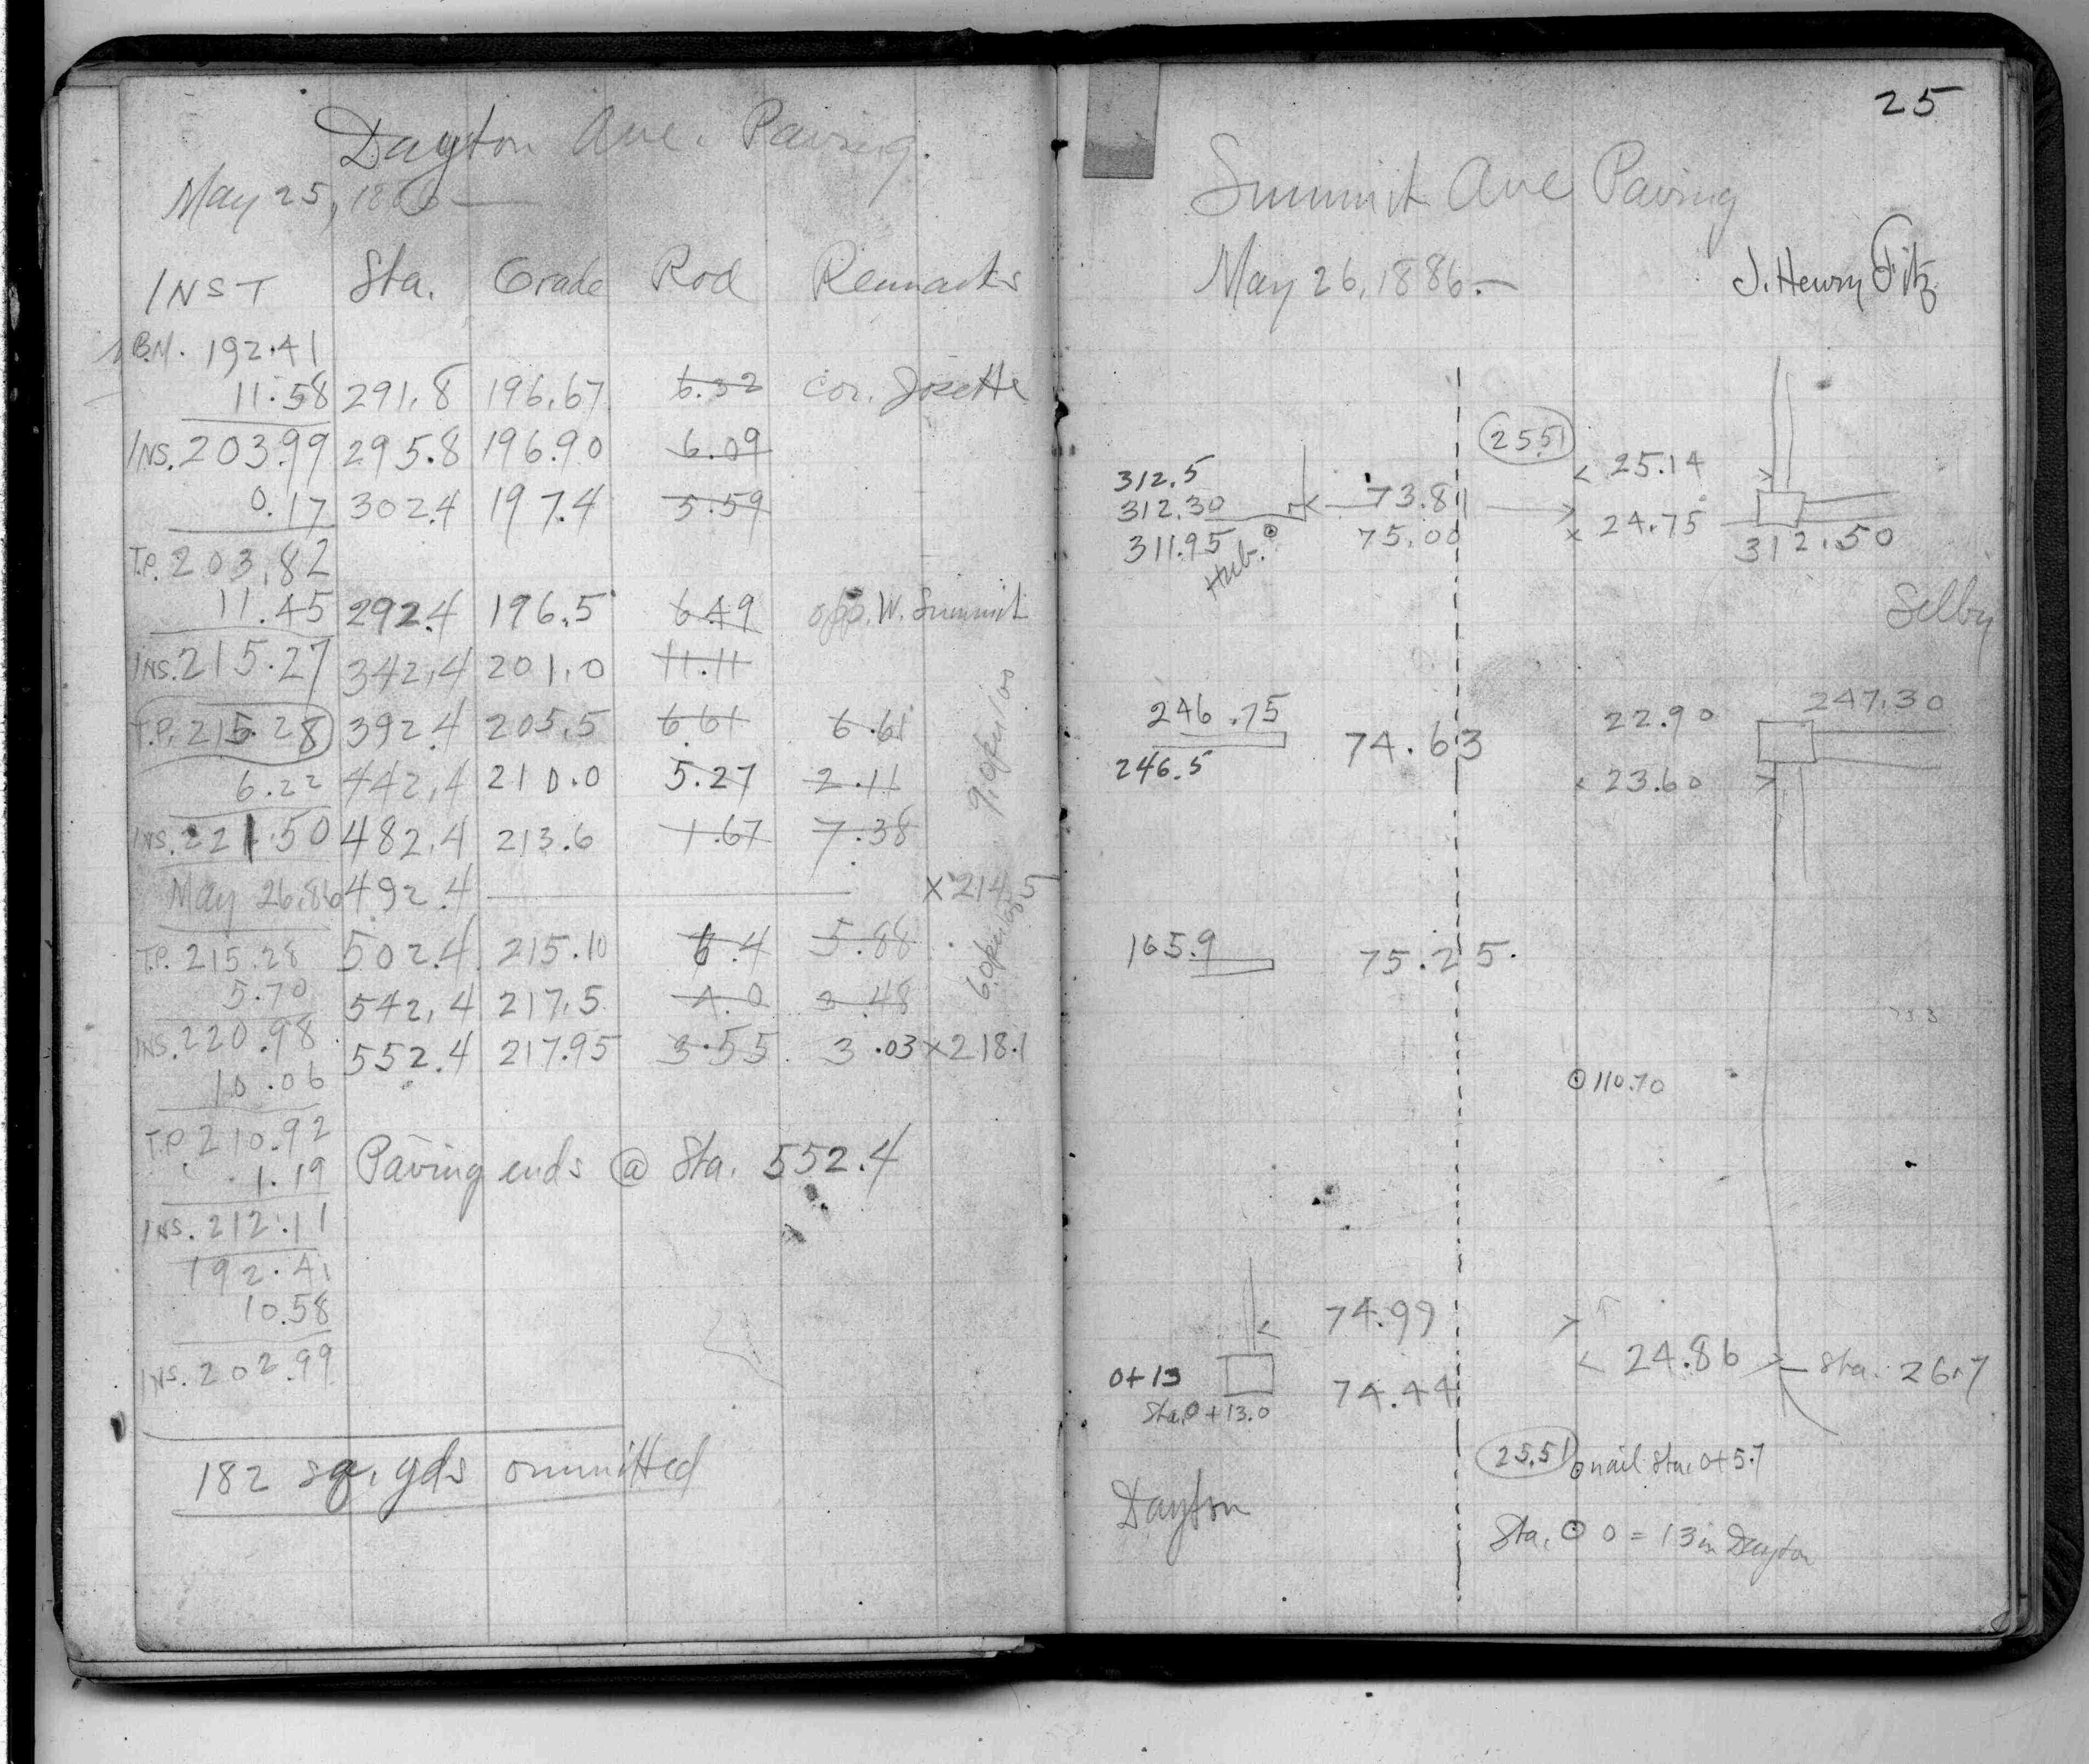 Dayton Ave. Paving.
May 25, 1886 —
INST Sta. Grade Rod Remarks
B.M. 192.41
11.58 291.8 196.67 6.32 cor. Josette
INS. 203.99 295.8 196.90 6.09
0.17 302.4 197.4 5.59
T.P. 203.82
11.45 292.4 196.5 6.49 opp. W. Summit
INS. 215.27 342.4 201.0 11.11
T.P. 215.28 392.4 205.5 6.61 6.61
6.22 442.4 210.0 5.27 2.11
INS. 221.50 482.4 213.6 1.67 7.38
9.0 per 100
May 26, 86 492.4 x 214.5
T.P. 215.28 502.4 215.10 6.4 5.88
5.70 542.4 217.5 4.0 3.48
INS. 220.98 552.4 217.95 3.55 3.03 x 218.1
6.0 per 100
10.06
T.P. 210.92
1.19 Paving ends @ Sta. 552.4
INS. 212.11
192.41
10.58
INS. 202.99
182 sq. yds ommitted
25
Summit Ave Paving
May 26, 1886. — J. Henry Fitz
25.5
312.5 25.14
312.30 73.81
311.95 75.00 24.75 312.50
Hub.
Selby
246.75 22.90 247.30
74.63
246.5 23.60
165.9 75.25.
110.70
74.99
24.86 Sta. 26.7
0+13 74.44
Sta. 0+13.0
25.5 nail Sta. 0+5.7
Dayton
Sta. 0 = 13 in Dayton